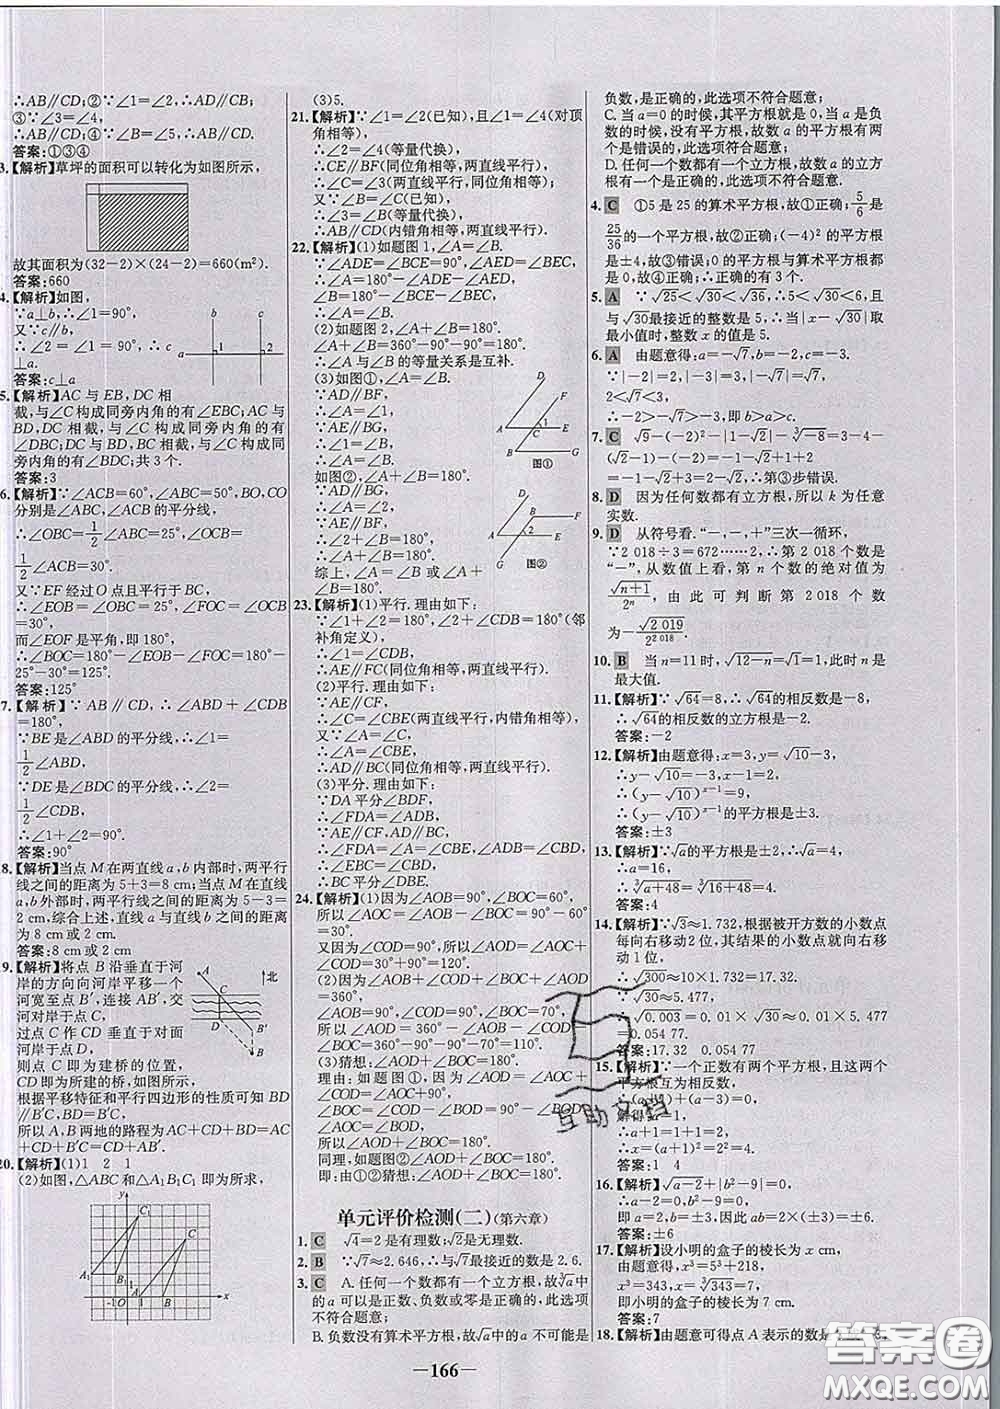 ∴AB∥CD;②∵∠1=∠2,∴AD∥CB;
③∵∠3=∠4,
∴AB∥CD;④∵∠B=∠5,∴AB∥CD.
答案:①③④
3.【解析】草坪的面积可以转化为如图所示,
故其面积为(32-2)×(24-2)=660(m²).
答案:660
4.【解析】如图,
∵a⊥b,∴∠1=90°,
又∵c∥b,
∴∠2=∠1=90°,∴c
⊥a.
答案:c⊥a
b c
a 1 2
5.【解析】AC与EB,DC相
截,与∠C构成同旁内角的有∠EBC;AC与
BD,DC相截,与∠C构成同旁内角的有
∠DBC;DC与BD,BC相截,与∠C构成同
旁内角的有∠BDC;共3个.
答案:3
6.【解析】∵∠ACB=60°,∠ABC=50°,BO,CO
分别是∠ABC,∠ACB的平分线,
∴∠OBC=1/2∠ABC=25°,∠OCB=
1/2∠ACB=30°.
又∵EF经过O点且平行于BC,
∴∠EOB=∠OBC=25°,∠FOC=∠OCB
=30°,
而∠EOF是平角,即180°,
∴∠BOC=180°-∠EOB-∠FOC=180°-
25°-30°=125°.
答案:125°
7.【解析】∵AB∥CD,∴∠ABD+∠CDB
=180°,
∵BE是∠ABD的平分线,∴∠1=
1/2∠ABD,
∵DE是∠BDC的平分线,∴∠2=
1/2∠CDB,
∴∠1+∠2=90°.
答案:90°
18.【解析】当点M在两直线a,b内部时,两平行
线之间的距离为5+3=8 cm;当点M在直线
a,b外部时,两平行线之间的距离为5-3=
2 cm.综合上述,直线a与直线b之间的距离
为8 cm或2 cm.
答案:8 cm或2 cm
19.【解析】将点B沿垂直于河
岸的方向向河岸平移一个
河宽至点B′,连接AB′,
交河对岸于点C,
过点C作CD垂直于对面
河岸于点D,
则点C即为建桥的位置,
CD即为所建的桥,如图.
根据平移特征和平行四边形的性质可知BD
∥B′C,BD=B′C.
所以A,B两地的路程为AC+CD+BD=AC
+CD+B′C=AB′+CD.
A 北
C
D B′
B
20.【解析】(1)1 2 1
(2)如图,△ABC和△A₁B₁C₁即为所求,
y
C₁
C
A₁ B₁ 1
-1 O A 1 B x
(3)5.
21.【解析】∵∠1=∠2(已知),且∠1=∠4(对顶
角相等),
∴∠2=∠4(等量代换),
∴CE∥BF(同位角相等,两直线平行),
∴∠C=∠3(两直线平行,同位角相等),
又∵∠B=∠C(已知),
∴∠3=∠B(等量代换),
∴AB∥CD(内错角相等,两直线平行).
22.【解析】(1)如题图1,∠A=∠B.
∵∠ADE=∠BCE=90°,∠AED=∠BEC,
∴∠A=180°-∠ADE-∠AED,
∠B=180°-∠BCE-∠BEC,
∴∠A=∠B.
(2)如题图2,∠A+∠B=180°.
∠A+∠B=360°-90°-90°=180°.
∴∠A与∠B的等量关系是互补.
(3)如图①,∠A=∠B.
∵AD∥BF,
∴∠A=∠1.
∵AE∥BG,
∴∠1=∠B,
∴∠A=∠B.
如图②,∠A+∠B=180°.
∵AD∥BG,
∴∠A=∠2.
∵AE∥BF,
∴∠2+∠B=180°,
∴∠A+∠B=180°.
综上,∠A=∠B或∠A+
∠B=180°.
D
F
1
A C E
B G
图①
D
B F
2
A E
G 图②
23.【解析】(1)平行.理由如下:
∵∠1+∠2=180°,∠2+∠CDB=180°(邻
补角定义),
∴∠1=∠CDB,
∴AE∥FC(同位角相等,两直线平行).
(2)平行.理由如下:
∵AE∥CF,
∴∠C=∠CBE(两直线平行,内错角相等),
又∵∠A=∠C,
∴∠A=∠CBE,
∴AD∥BC(同位角相等,两直线平行).
(3)平分.理由如下:
∵DA平分∠BDF,
∴∠FDA=∠ADB,
∵AE∥CF,AD∥BC,
∴∠FDA=∠A=∠CBE,∠ADB=∠CBD,
∴∠EBC=∠CBD,
∴BC平分∠DBE.
24.【解析】(1)因为∠AOB=90°,∠BOC=60°,
所以∠AOC=∠AOB-∠BOC=90°-60°
=30°.
又因为∠COD=90°,所以∠AOD=∠AOC+
∠COD=30°+90°=120°.
(2)因为∠AOB+∠COD+∠BOC+∠AOD
=360°,
∠AOB=90°,∠COD=90°,∠BOC=70°,
所以∠AOD=360°-∠AOB-∠COD-
∠BOC=360°-90°-90°-70°=110°.
(3)猜想:∠AOD+∠BOC=180°.
理由:如图①,因为∠AOD=∠AOC+
∠COD=∠AOC+90°,
∠BOC=∠AOB-∠AOC=90°-∠AOC,
所以∠AOD+∠BOC=180°.
同理,如题图②∠AOD+∠BOC=180°.
即:由①②猜想:∠AOD+∠BOC=180°.
单元评价检测(二)(第六章)
1. C √4=2是有理数;√2是无理数.
2. B ∵√7≈2.646,∴与√7最接近的数是2.6.
3. C A.任何一个数都有一个立方根,故∛a中
的a可以是正数、负数或零是正确的,此选项
不符合题意;
B.负数没有算术平方根,故√a中的a不可能是
负数,是正确的,此选项不符合题意;
C.当a=0的时候,就一个平方根,当a是负
数的时候,没有平方根,故数a的平方根有两
个是错误的,此选项符合题意;
D.任何一个数都有一个立方根,故数a的立方
根有一个是正确的,此选项不符合题意.
4. C ①5是25的算术平方根,故①正确;5/6是
25/36的一个平方根,故②正确;(-4)²的平方根
是±4,故③错误;0的平方根与算术平方根都
是0,故④正确;∴正确的有3个.
5. A ∵√25<√30<√36,∴5<√30<6,且
与√30最接近的整数是5,∴当|x-√30|取
最小值时,整数x的值是5.
6. A 由题意得:a=-√7,b=-2,c=-3.
∵|-2|=2,|-√7|=√7,|-3|=3,
2<√7<3,
∴-2>-√7>-3,即b>a>c.
7. C √9-(-2)²-|1-√2|-∛-8=3-4-
(√2-1)-(-2)=-1-√2+1+2
=-1-√2+1+2=2-√2,
8. D 因为任何数都有立方根,所以k为任意
实数.
9. D 从符号看.“-,-,+”三次一循环,
∵2 018÷3=672……2,∴第2 018个数是
“-”,从数值上看,第n个数的绝对值为
√n+1/2ⁿ,由此可判断第2 018个数
为-√2 019/2²⁰¹⁸.
10. B 当n=11时,√12-n=√1=1,此时n是
最大值.
11.【解析】∵√64=8,∴√64的相反数是-8,
∴√64的相反数的立方根是-2.
答案:-2
12.【解析】由题意得:x=3,y=√10-3,
∴y-√10=-3,x-1=2,
∴(y-√10)ˣ⁻¹=9,
∴(y-√10)ˣ⁻¹的平方根是±3.
答案:±3
13.【解析】∵√a的平方根是±2,∴√a=4,
∴a=16,
∴∛a+48=∛16+48=∛64=4.
答案:4
14.【解析】∵√3≈1.732,根据被开方数的小数点
每向右移动2位,其结果的小数点就向右移
动1位,
∴√300≈10×1.732=17.32.
∵√30≈5.477,
∴√0.003=0.01×√30≈0.01×5.477
=0.054 77.
答案:17.32 0.054 77
15.【解析】∵一个正数有两个平方根,且这两个
平方根互为相反数,
解得a=1.
∴a+1=1+1=2,
∴这个正数是2²=4.
答案:1 4
16.【解析】∵√a-2+|b²-9|=0,
∴a-2=0,b²-9=0,
即a=2,b=±3,因此ab=2×(±3)=±6.
答案:±6
17.【解析】设小明的盒子的棱长为x cm,
由题意得,x³=5³+218,
x³=343,x=∛343=7,
即小明的盒子的棱长为7 cm.
答案:7
18.【解析】由题意可得点A表示的数是
—166—
互助文档
答案圈
MXQE.COM